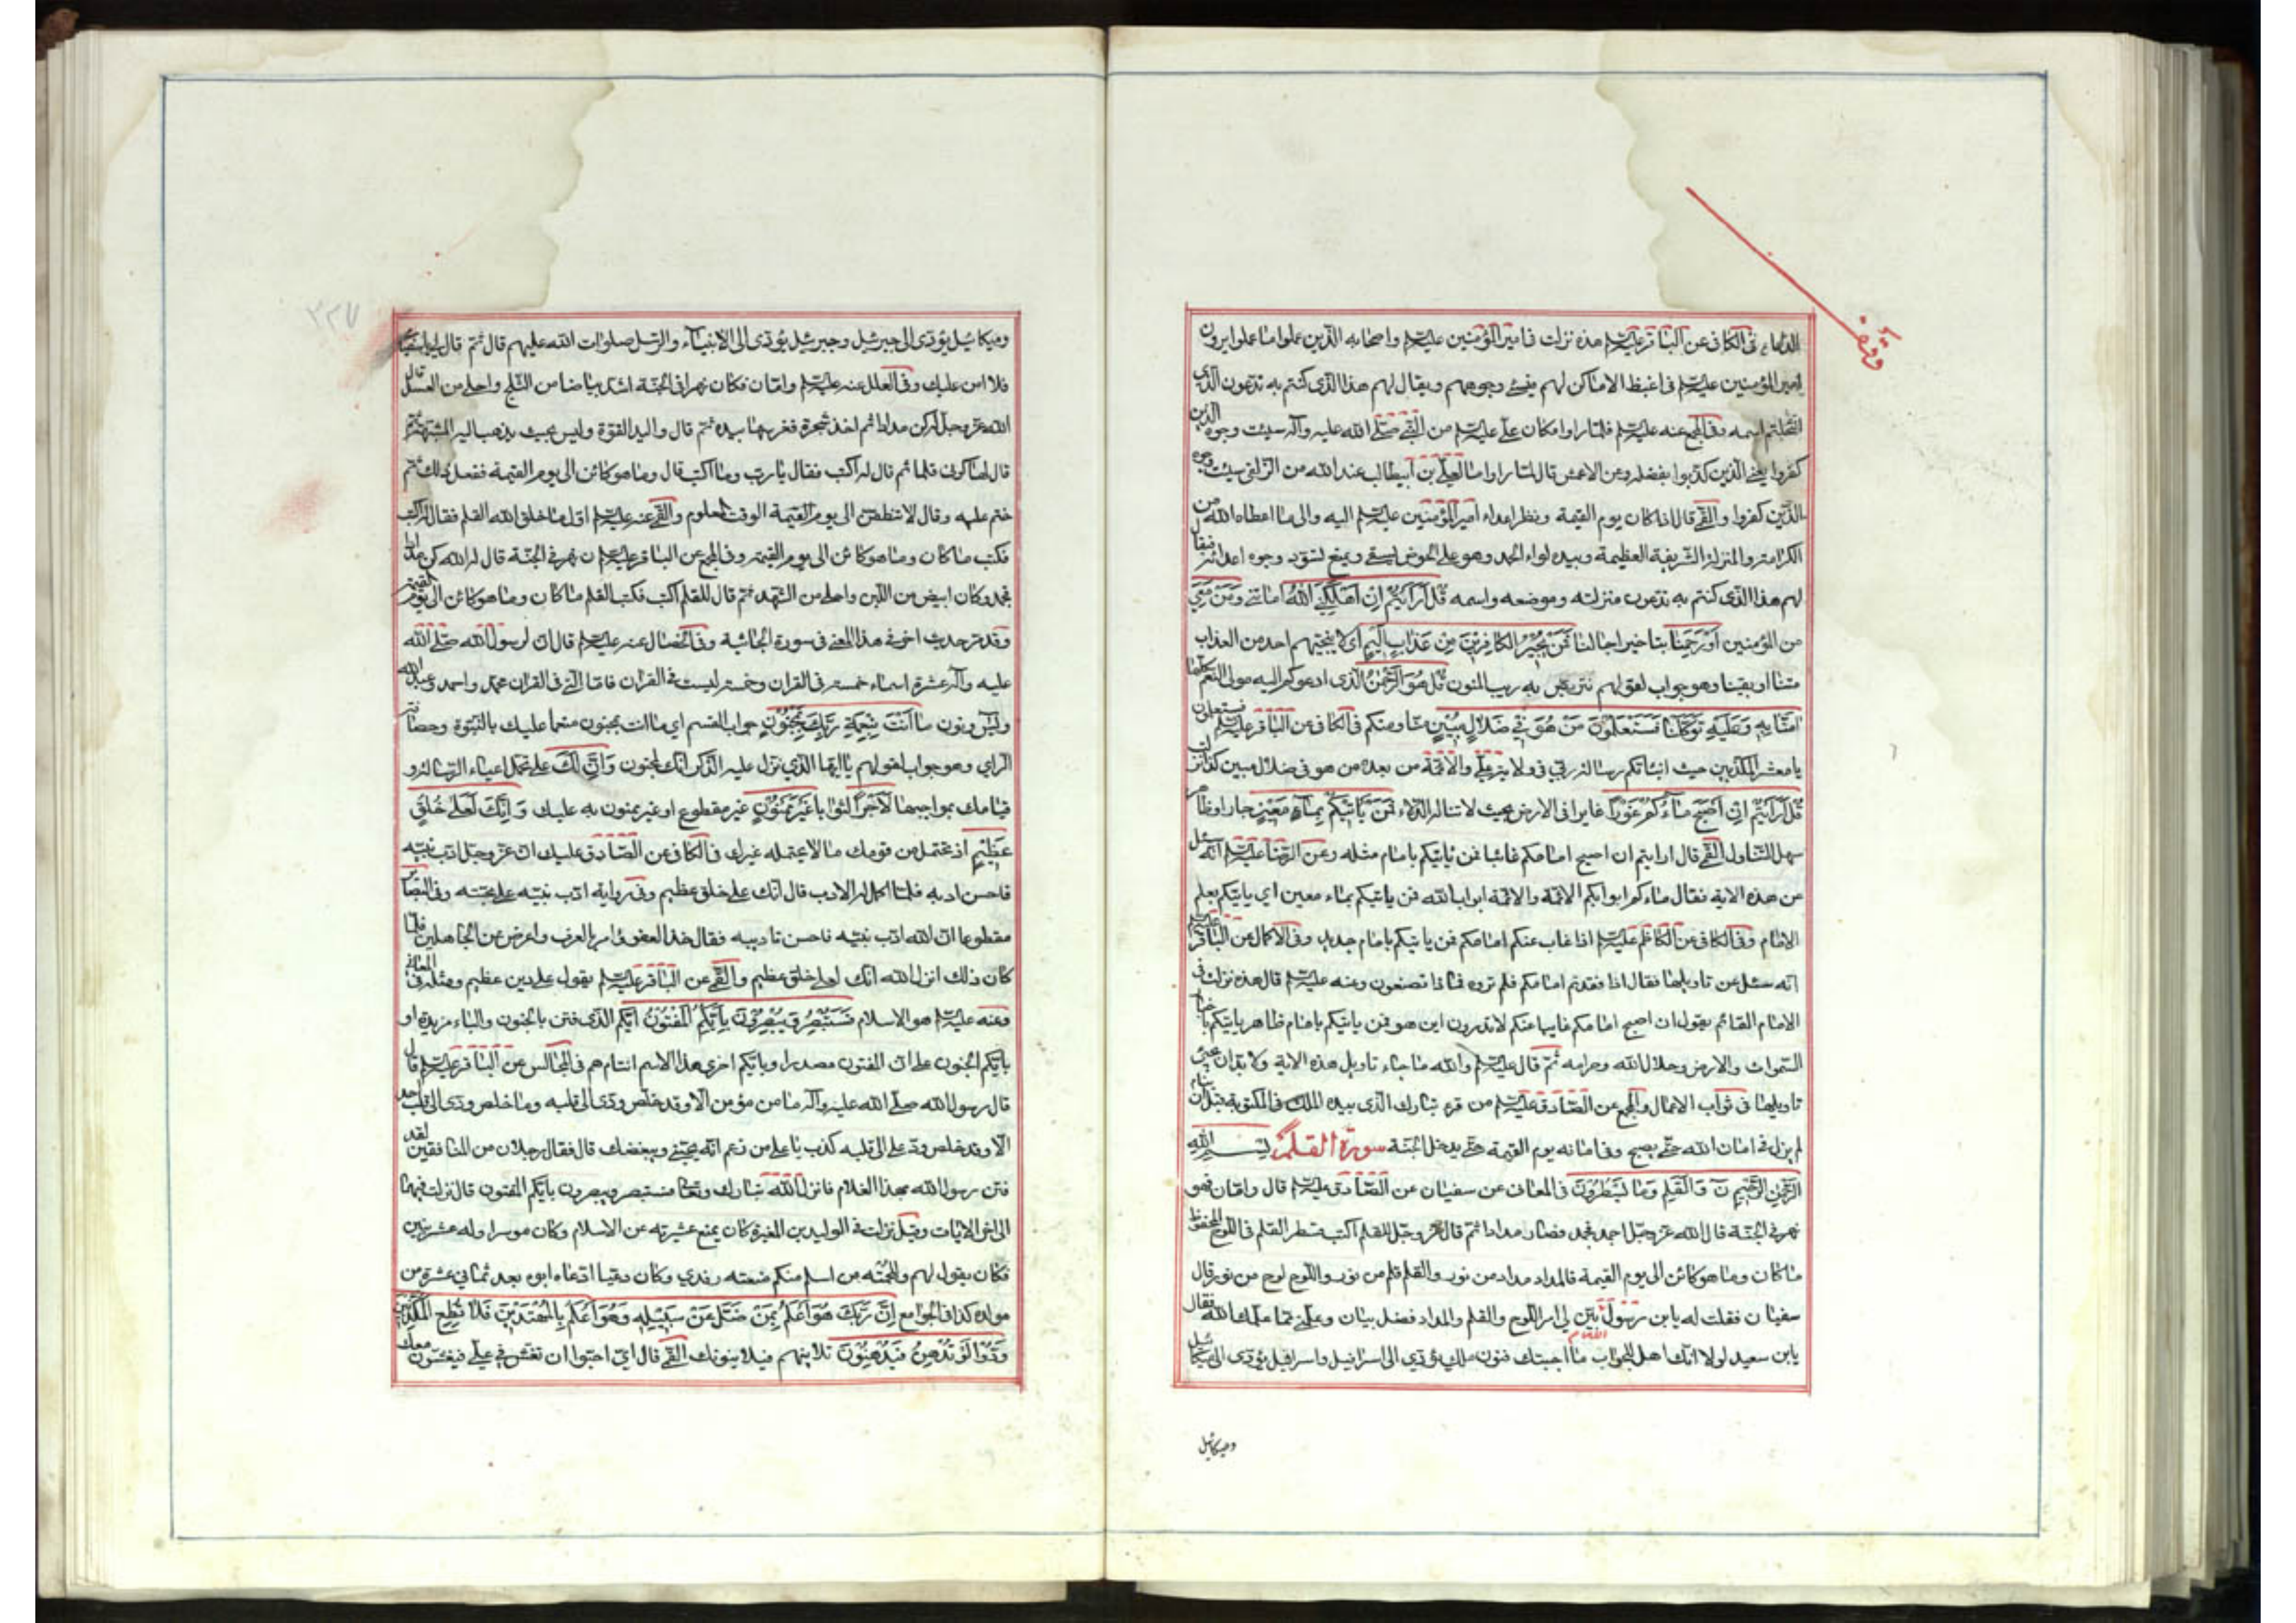 الدعاء في الكافي عن الباقر عليه السلم هذه نزلت في امير المؤمنين عليه السلم واصحابه الذين عملوا ما عملوا يرون
امير المؤمنين عليه السلم في اغبط الاماكن لهم فيسئ وجوههم ويقال لهم هذا الذى كنتم به تدعون الذي
انتحلتم اسمه وفي المجمع عنه عليه السلم فلما راوا مكان علي عليه السلم من النبي صلى الله عليه وآله سيئت وجوه الذين
كفروا يعني الذين كذبوا بفضله وعن الاعمش قال لما راوا ما لعلي بن ابيطالب عند الله من الزلفى سيئت وجوه
الذين كفروا والقمي قال اذا كان يوم القيمة ونظر اعداء امير المؤمنين عليه السلم اليه والى ما اعطاه الله من
الكرامة والمنزلة الشريفة العظيمة وبيده لواء الحمد وهو على الحوض يسقي ويمنع تسود وجوه اعدائه فيقال
لهم هذا الذى كنتم به تدعون منزلته وموضعه واسمه قُلْ اَرَاَيْتُمْ اِنْ اَهْلَكَنِيَ اللّٰهُ اماتني وَمَنْ مَعِيَ
من المؤمنين اَوْ رَحِمَنَا بتاخير اجالنا فَمَنْ يُجِيْرُ الكافِرِيْنَ مِنْ عَذَابٍ اَلِيْمٍ اى لا ينجيهم احد من العذاب
متنا او بقينا وهو جواب لقولهم نتربص به ريب المنون قُلْ هُوَ الرَّحْمٰنُ الذى ادعوكم اليه مولى النعم كلها
اٰمَنَّا بِهِ وَعَلَيْهِ تَوَكَّلْنَا فَسَتَعْلَمُوْنَ مَنْ هُوَ فِي ضَلالٍ مُبِيْنٍ منا ومنكم في الكافي عن الباقر عليه السلم فستعلمون
يا معشر المكذبين حيث انباتكم رسالة ربي في ولاية علي والائمة من بعده من هو في ضلال مبين كذا انزلت
قُلْ اَرَاَيْتُمْ اِنْ اَصْبَحَ مَاءُكُمْ غَوْرًا غايرا في الارض بحيث لا تناله الدلاء فَمَنْ يَاْتِيْكُمْ بِمَاءٍ مَعِيْنٍ جار او ظاهر
سهل التناول القمي قال ارايتم ان اصبح امامكم غائبا فمن ياتيكم بامام مثله وعن الرضا عليه السلم انه سئل
من هذه الاية فقال ماءكم ابوابكم الائمة والائمة ابواب الله فمن ياتيكم بماء معين اي ياتيكم بعلم
الامام وفي الكافي عن الكاظم عليه السلم اذا غاب عنكم امامكم فمن ياتيكم بامام جديد وفي الاكمال عن الباقر عليه السلم
انه سئل عن تاويلها فقال اذا فقدتم امامكم فلم تروه فماذا تصنعون وعنه عليه السلم قال هذه نزلت في
الامام القائم يقول ان اصبح امامكم غايبا عنكم لا تدرون اين هو فمن ياتيكم بامام ظاهر ياتيكم باخبار
السموات والارض وحلال الله وحرامه ثم قال عليه السلم والله ما جاء تاويل هذه الاية ولا بد ان يجئ
تاويلها في ثواب الاعمال والمجمع عن الصادق عليه السلم من قرء تبارك الذى بيده الملك في المكتوبة قبل ان ينام
لم يزل في امان الله حتى يصبح وفي امانه يوم القيمة حتى يدخل الجنة سورة القلم بسم الله
الرَّحْمٰنِ الرَّحِيْمِ نٓ وَالْقَلَمِ وَمَا يَسْطُرُوْنَ في المعاني عن سفيان عن الصادق عليه السلم قال واما ن فهو
نهر في الجنة قال الله عز وجل اجمد فجمد فصار مدادا ثم قال عز وجل للقلم اكتب فسطر القلم في اللوح المحفوظ
ما كان وما هو كائن الى يوم القيمة فالمداد مداد من نور والقلم قلم من نور واللوح لوح من نور قال
سفيان فقلت له يا بن رسول الله بين لي امر اللوح والقلم والمداد فضل بيان وعلمني مما علمك الله فقال
يا بن سعيد لولا انك اهل للجواب ما اجبتك فنون ملك يؤدي الى القلم
الى اسرافيل واسرافيل يؤدى الى ميكائيل
وميكائيل
وقف
٣٢٧
وميكائيل يؤدى الى جبرئيل وجبرئيل يؤدى الى الانبياء والرسل صلوات الله عليهم قال ثم قال لي قم يا سفيان
فلا امن عليك وفي العلل عنه عليه السلم واما ن فكان نهرا في الجنة اشد بياضا من الثلج واحلى من العسل قال
الله عز وجل له كن مدادا ثم اخذ شجرة فغرسها بيده ثم قال واليد القوة وليس بحيث يذهب اليه المشبهة ثم
قال لها كوني قلما ثم قال له اكتب فقال يا رب وما اكتب قال وما هو كائن الى يوم القيمة ففعل ذلك ثم
ختم عليه وقال لا تنطقن الى يوم القيمة الوقت المعلوم والقمي عنه عليه السلم اول ما خلق الله القلم فقال له اكتب
فكتب ما كان وما هو كائن الى يوم القيمة وفي المجمع عن الباقر عليه السلم ن نهر في الجنة قال له الله كن مدادا
فجمد وكان ابيض من اللبن واحلى من الشهد ثم قال للقلم اكتب فكتب القلم ما كان وما هو كائن الى يوم القيمة
وقد مر حديث اخر في هذا المعنى في سورة الجاثية وفي الخصال عنه عليه السلم قال ان لرسول الله صلى الله
عليه وآله عشرة اسماء خمسة في القران وخمسة ليست في القران فاما التي في القران محمد واحمد وعبد الله
ويس ونون مَا اَنْتَ بِنِعْمَةِ رَبِّكَ بِمَجْنُوْنٍ جواب القسم اي ما انت بمجنون منعما عليك بالنبوة وحصافة
الراي وهو جواب لقولهم يا ايها الذي نزل عليه الذكر انك لمجنون وَاِنَّ لَكَ على تحمل اعباء الرسالة و
قيامك بمواجبها لَاَجْرًا لثوابا غَيْرَ مَمْنُوْنٍ غير مقطوع او غير ممنون به عليك وَاِنَّكَ لَعَلٰى خُلُقٍ
عَظِيْمٍ اذ تحتمل من قومك ما لا يحتمله غيرك في الكافي عن الصادق عليك ان الله عز وجل ادب نبيه
فاحسن ادبه فلما اكمل له الادب قال انك على خلق عظيم وفي رواية ادب نبيه على محبته وفي البصائر
مقطوعا ان الله ادب نبيه فاحسن تاديبه فقال خذ العفو وامر بالعرف واعرض عن الجاهلين فلما
كان ذلك انزل الله انك لعلى خلق عظيم والقمي عن الباقر عليه السلم يقول على دين عظيم ومثله في المعاني
وعنه عليه السلم هو الاسلام فَسَتُبْصِرُ وَيُبْصِرُوْنَ بِاَيِّكُمُ الْمَفْتُوْنُ ايكم الذى فتن بالجنون والباء مزيدة او
بايكم الجنون على ان المفتون مصدر او بايكم احرى هذا الاسم انتم ام هم في المجالس عن الباقر عليه السلم قال
قال رسول الله صلى الله عليه وآله ما من مؤمن الا وقد خلص ودى الى قلبه وما خلص ودى الى قلب احد
الا وقد خلص ود علي الى قلبه كذب يا علي من زعم انه يحبني ويبغضك قال فقال رجلان من المنافقين لقد
فتن رسول الله بهذا الغلام فانزل الله تبارك وتعالى فستبصر ويبصرون بايكم المفتون قال نزلت فيهما
الى اخر الايات وقيل نزلت في الوليد بن المغيرة كان يمنع عشيرته عن الاسلام وكان موسرا وله عشر بنين
فكان يقول لهم وللحمته من اسلم منكم منعته رفدي وكان دعيا ادعاه ابوه بعد ثماني عشرة من
مولده كذا في الجوامع اِنَّ رَبَّكَ هُوَ اَعْلَمُ بِمَنْ ضَلَّ عَنْ سَبِيْلِهِ وَهُوَ اَعْلَمُ بِالْمُهْتَدِيْنَ فَلَا تُطِعِ الْمُكَذِّبِيْنَ
وَدُّوْا لَوْ تُدْهِنُ فَيُدْهِنُوْنَ تلاينهم فيلاينونك القمي قال اي احبوا ان تغش في علي فيغشون معك